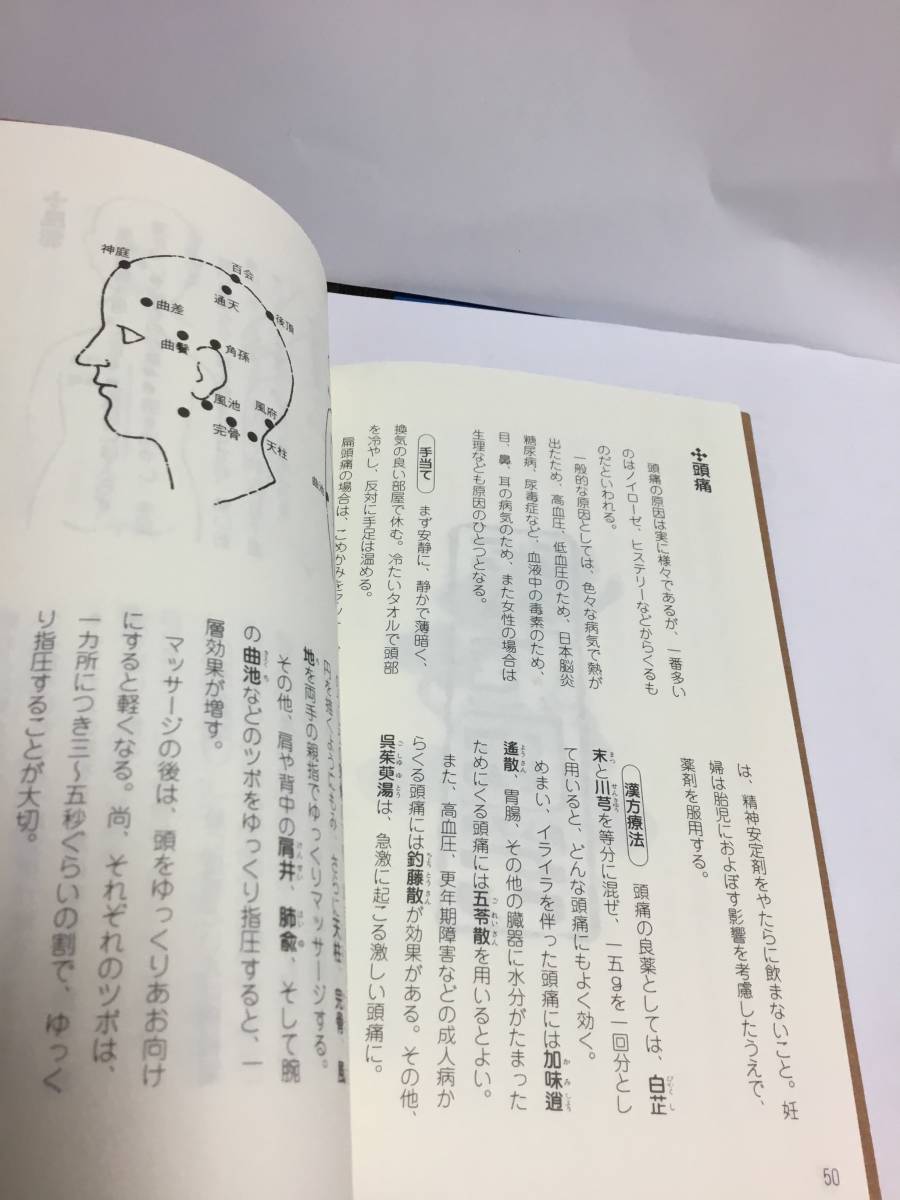 ✣頭痛
頭痛の原因は実に様々であるが、一番多い
のはノイローゼ、ヒステリーなどからくるも
のだといわれる。
一般的な原因としては、色々な病気で熱が
出たため、高血圧、低血圧のため、日本脳炎
糖尿病、尿毒症など、血液中の毒素のため、
目、鼻、耳の病気のため、また女性の場合は
生理なども原因のひとつとなる。
手当て まず安静に、静かで薄暗く、
換気の良い部屋で休む。冷たいタオルで頭部
を冷やし、反対に手足は温める。
扁頭痛の場合は、こめかみを
は、精神安定剤をやたらに飲まないこと。妊
婦は胎児におよぼす影響を考慮したうえで、
薬剤を服用する。
漢方療法 頭痛の良薬としては、白芷
末と川芎を等分に混ぜ、一五gを一回分とし
て用いると、どんな頭痛にもよく効く。
めまい、イライラを伴った頭痛には加味逍
遙散、胃腸、その他の臓器に水分がたまった
ためにくる頭痛には五苓散を用いるとよい。
また、高血圧、更年期障害などの成人病か
らくる頭痛には釣藤散が効果がある。その他、
呉茱萸湯は、急激に起こる激しい頭痛に。
50
神庭
百会
通天
後頂
曲差
曲鬢
角孫
風池
風府
完骨
天柱
地を両手の親指でゆっくりマッサージする。
その他、肩や背中の肩井、肺兪、そして腕
の曲池などのツボをゆっくり指圧すると、一
層効果が増す。
マッサージの後は、頭をゆっくりあお向け
にすると軽くなる。尚、それぞれのツボは、
一カ所につき三〜五秒ぐらいの割で、ゆっく
り指圧することが大切。